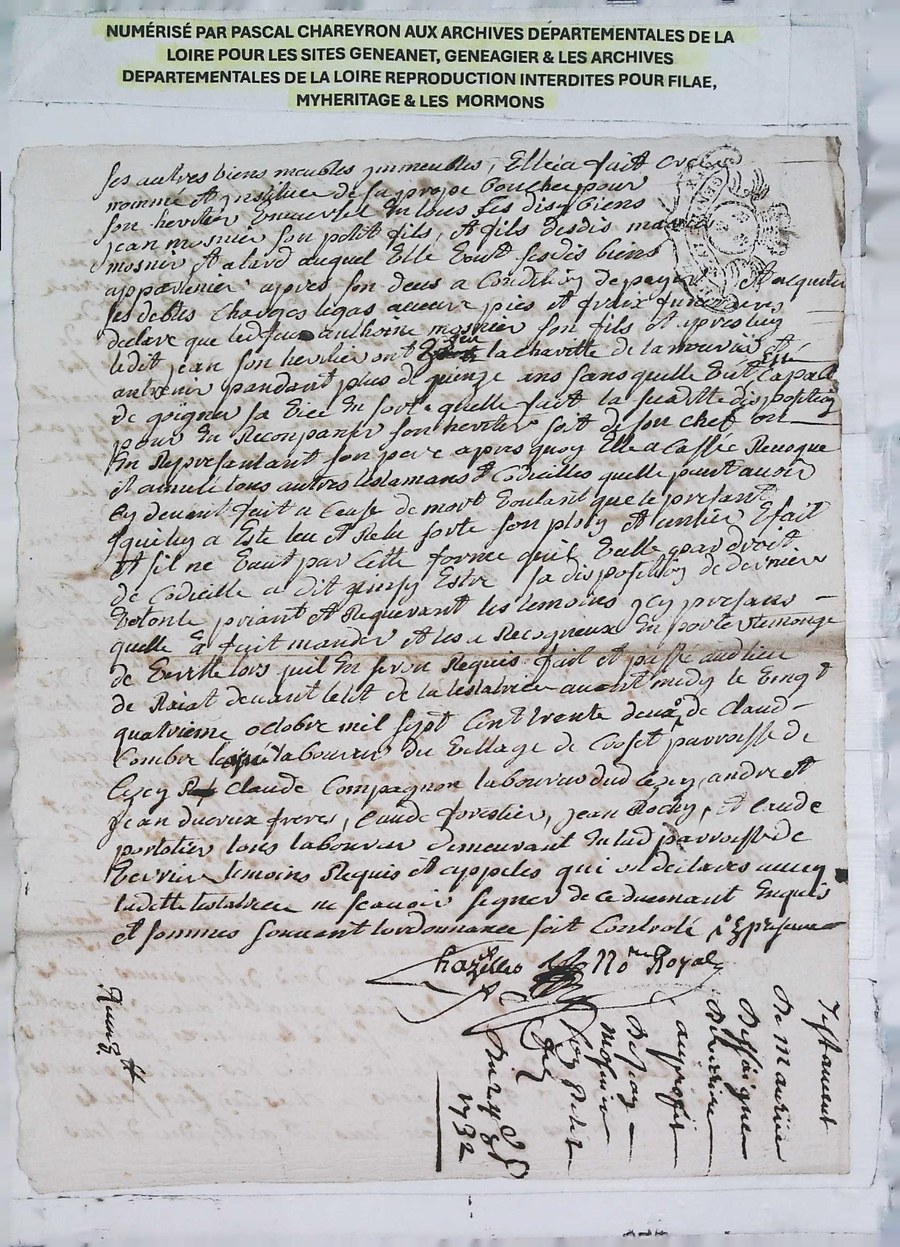 NUMÉRISÉ PAR PASCAL CHAREYRON AUX ARCHIVES DEPARTEMENTALES DE LA
LOIRE POUR LES SITES GENEANET, GENEAGIER & LES ARCHIVES
DEPARTEMENTALES DE LA LOIRE REPRODUCTION INTERDITES POUR FILAE,
MYHERITAGE & LES MORMONS
ses autres biens meubles jmmeubles, Elle a fait creé
nommé et jnstitue de sa propre bouche pour
son heritier universel en tous ses dis biens
jean mosnier son petit fils, et fils desdis
mosnier et auquel Elle veut ses dis biens
appartenir apres son deces a condition de payer et acquiter
les debtes charges legas œuvre pies et fraix funeraires
declare que led feu anthoine mosnier son fils et apres luy
ledit jean son heritier ont la charitté de la nourrir et
antretenir pandant plus de quinze ans sans quelle fut capable
de gaigner sa vie en sorte quelle fait la susditte disposition
pour en recompanser son heritier soit de son chef ou
en represantant son pere apres quoy Elle a cassée revoque
et annulé tous autres testamans et codicilles quelle peut avoir
cy devant fait a cause de mort voulant que le presant
qui luy a esté leu et relu sorte son plein et entier Effait
et sil ne vaut par cette forme quil vallie par droit
de codicille a dit ainsy Estre sa disposition de derniere
volonte priant et requerant les temoins jcy presans
quelle a fait mander et les a recogneux en porter temoinage
de verité lors quil en seron requis fait et passé audlieu
de devant le lit de la testatrice avant midy le vingt
quatrieme octobre mil sept cent trente deux, de claud
combre laboureur du village de parroisse de
claude compagnon laboureur dud andre et
jean freres, claude forestier, jean Rochy, et claude
tous laboureur demeurant en lad parroisse de
temoins requis et appeles qui on declares avec
laditte testatrice ne scavoir signer de ce duemant enquis
et sommes suivant lordonnance soit controlé
Chazelles No.re Royal
Testament
De Mauricia
auproffit
De jean
mosnier
petit
Du 24 8bre
1732